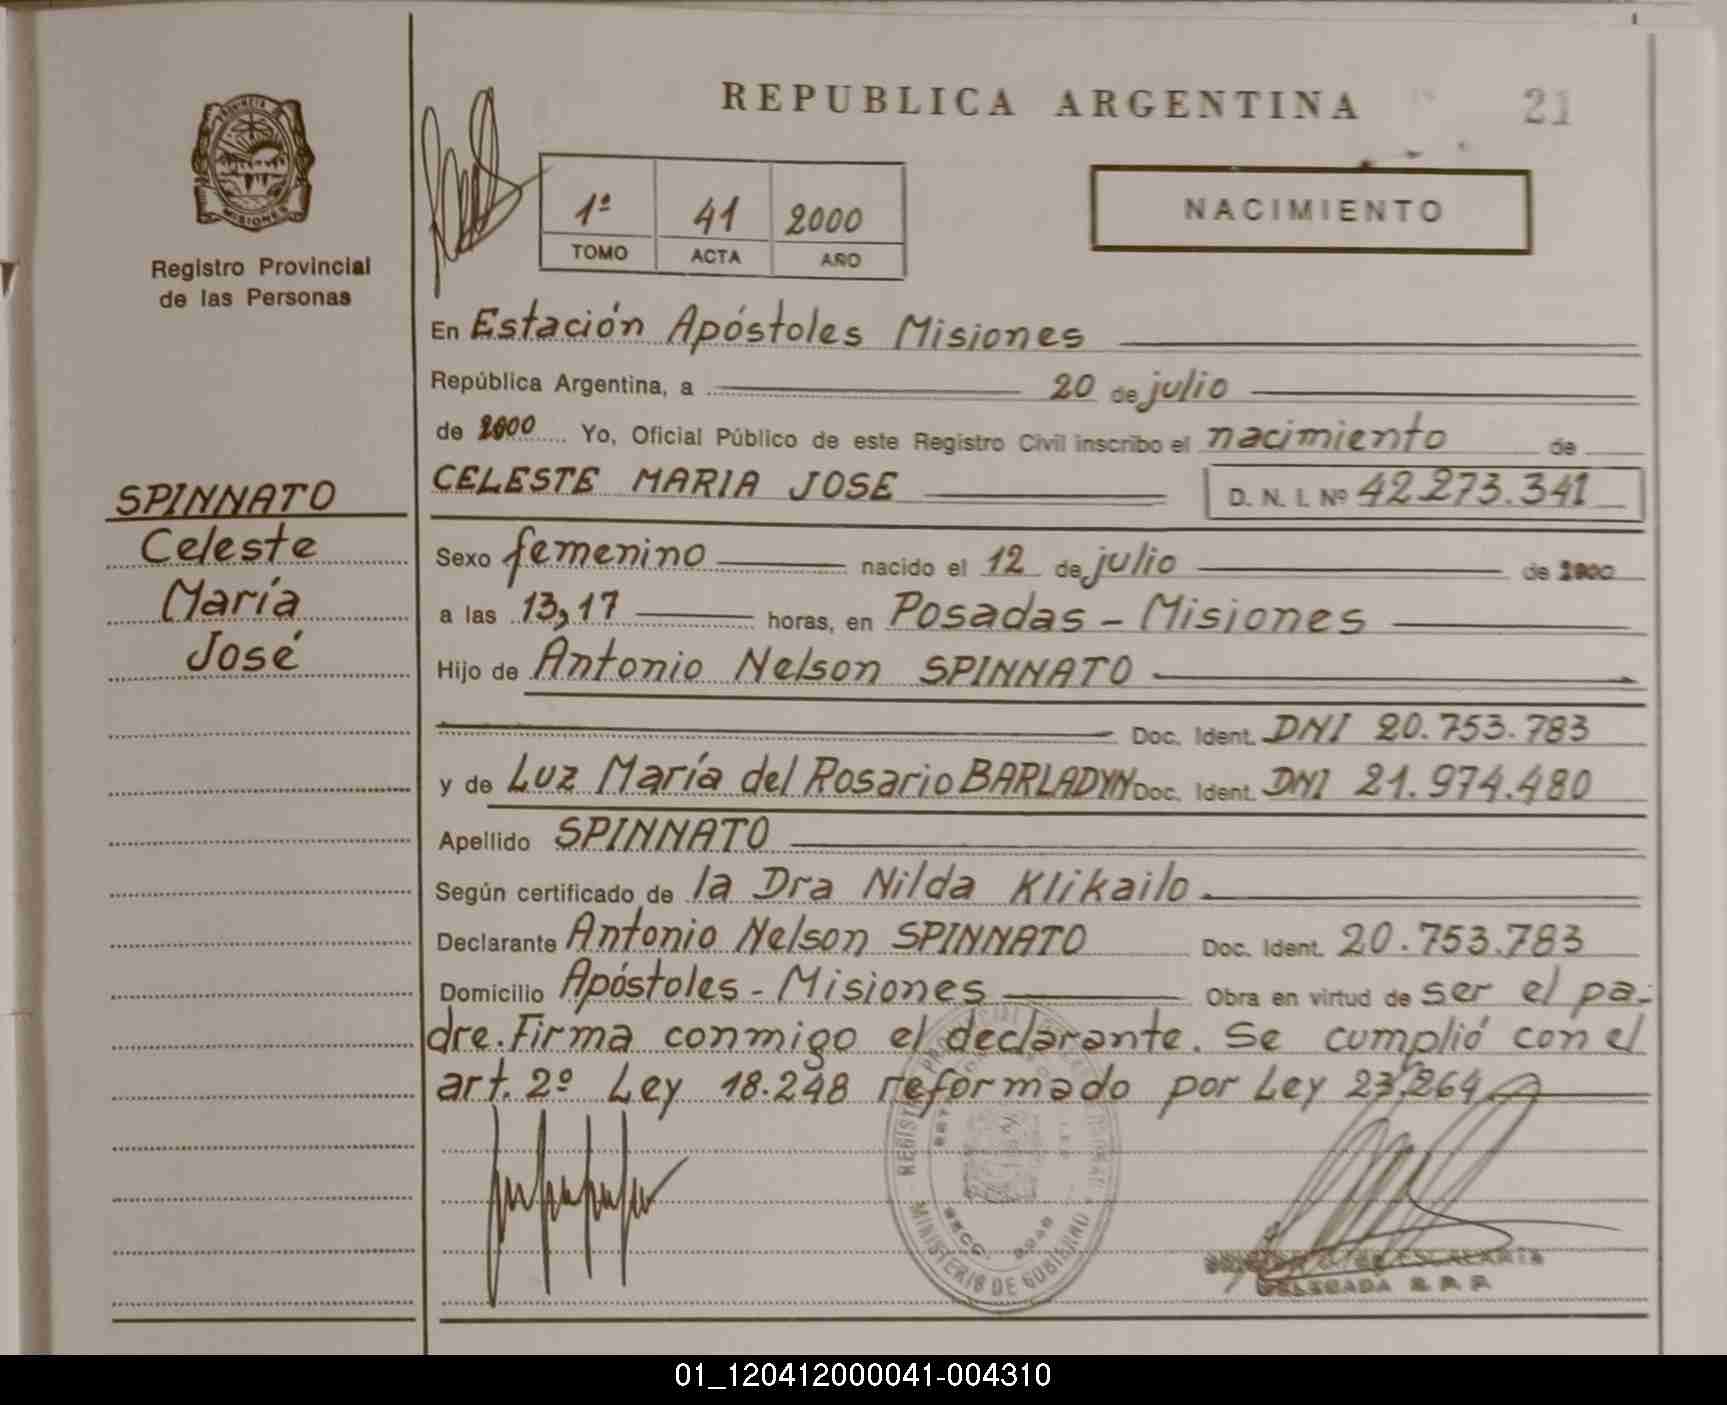 REPUBLICA ARGENTINA
21
PROVINCIA
MISIONES
Registro Provincial
de las Personas
1º 41 2000
TOMO ACTA AÑO
NACIMIENTO
En Estación Apóstoles Misiones
República Argentina, a 20 de julio
de 2000 Yo, Oficial Público de este Registro Civil inscribo el nacimiento de
CELESTE MARIA JOSE D. N. I. Nº 42.273.341
SPINNATO
Celeste
María
José
Sexo femenino nacido el 12 de julio de 2000
a las 13,17 horas, en Posadas - Misiones
Hijo de Antonio Nelson SPINNATO
Doc. Ident. DNI 20.753.783
y de Luz María del Rosario BARLADYN Doc. Ident. DNI 21.974.480
Apellido SPINNATO
Según certificado de la Dra Nilda Klikailo
Declarante Antonio Nelson SPINNATO Doc. Ident. 20.753.783
Domicilio Apóstoles - Misiones Obra en virtud de ser el pa-
dre. Firma conmigo el declarante. Se cumplió con el
art. 2º Ley 18.248 reformado por Ley 23.264
MINISTERIO DE GOBIERNO
DELEGADA R. P. P.
01_120412000041-004310